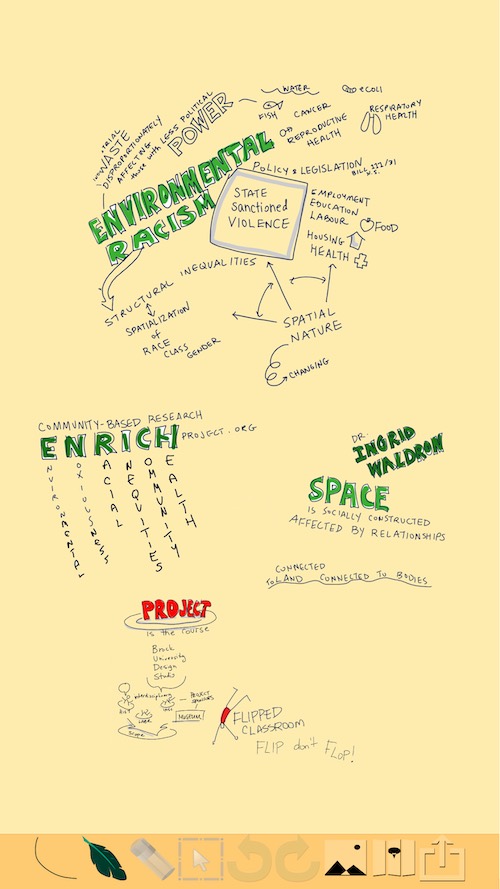 WASTE
DISPROPORTIONATELY
AFFECTING
those with LESS POLITICAL
POWER
WATER
FISH
ecoli
CANCER
REPRODUCTIVE
HEALTH
RESPIRATORY
HEALTH
ENVIRONMENTAL
RACISM
POLICY & LEGISLATION
BILL 111/31
N.S.
STATE
Sanctioned
VIOLENCE
EMPLOYMENT
EDUCATION
LABOUR
FOOD
HOUSING
HEALTH
STRUCTURAL INEQUALITIES
SPATIALIZATION
of
RACE
CLASS
GENDER
SPATIAL
NATURE
CHANGING
COMMUNITY-BASED RESEARCH
ENRICH PROJECT.ORG
ENVIRONMENTAL
NOXIOUSNESS
RACIAL
INEQUITIES
COMMUNITY
HEALTH
DR.
INGRID
WALDRON
SPACE
IS SOCIALLY CONSTRUCTED
AFFECTED BY RELATIONSHIPS
CONNECTED
TO LAND CONNECTED TO BODIES
PROJECT
is the course
Brock
University
Design
Studio
interdisciplinary
PROJECT
SPONSORS
MUSEUM
FLIPPED
CLASSROOM
FLIP don't FLOP!